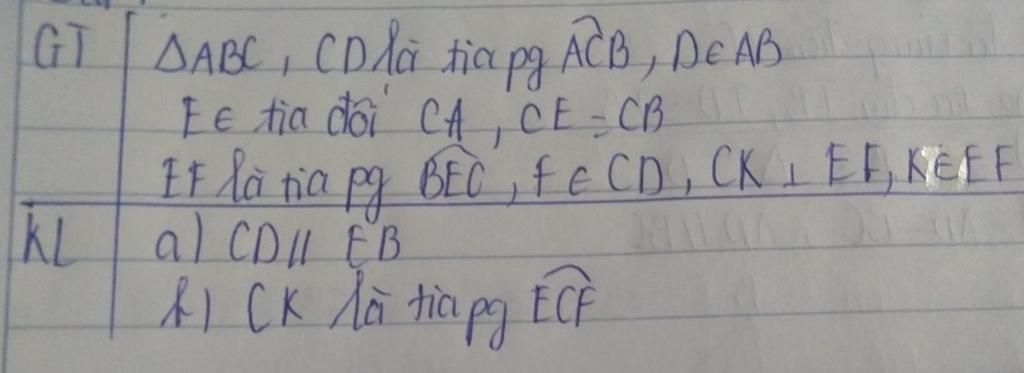 GT ΔABC, CD là tia pg ACB, D∈AB
E∈ tia đối CA, CE = CB
EF là tia pg BEC, F∈CD, CK ⊥ EF, K∈EF
KL a) CD // EB
b) CK là tia pg ECF